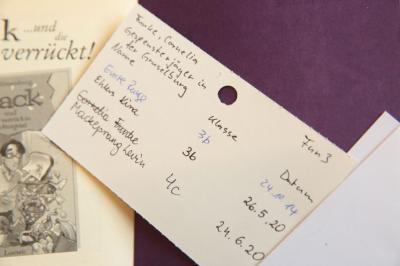 k ...und
die
verrückt!
ack
und
Funke, Cornelia
Gespensterjäger in
der Gruselburg
Fun 3
Name Klasse Datum
3b 24.11.14
Ehlers Kira 3b 26.5.20
Cornelia Funke
Mackeprang Levin 4c 24.6.20